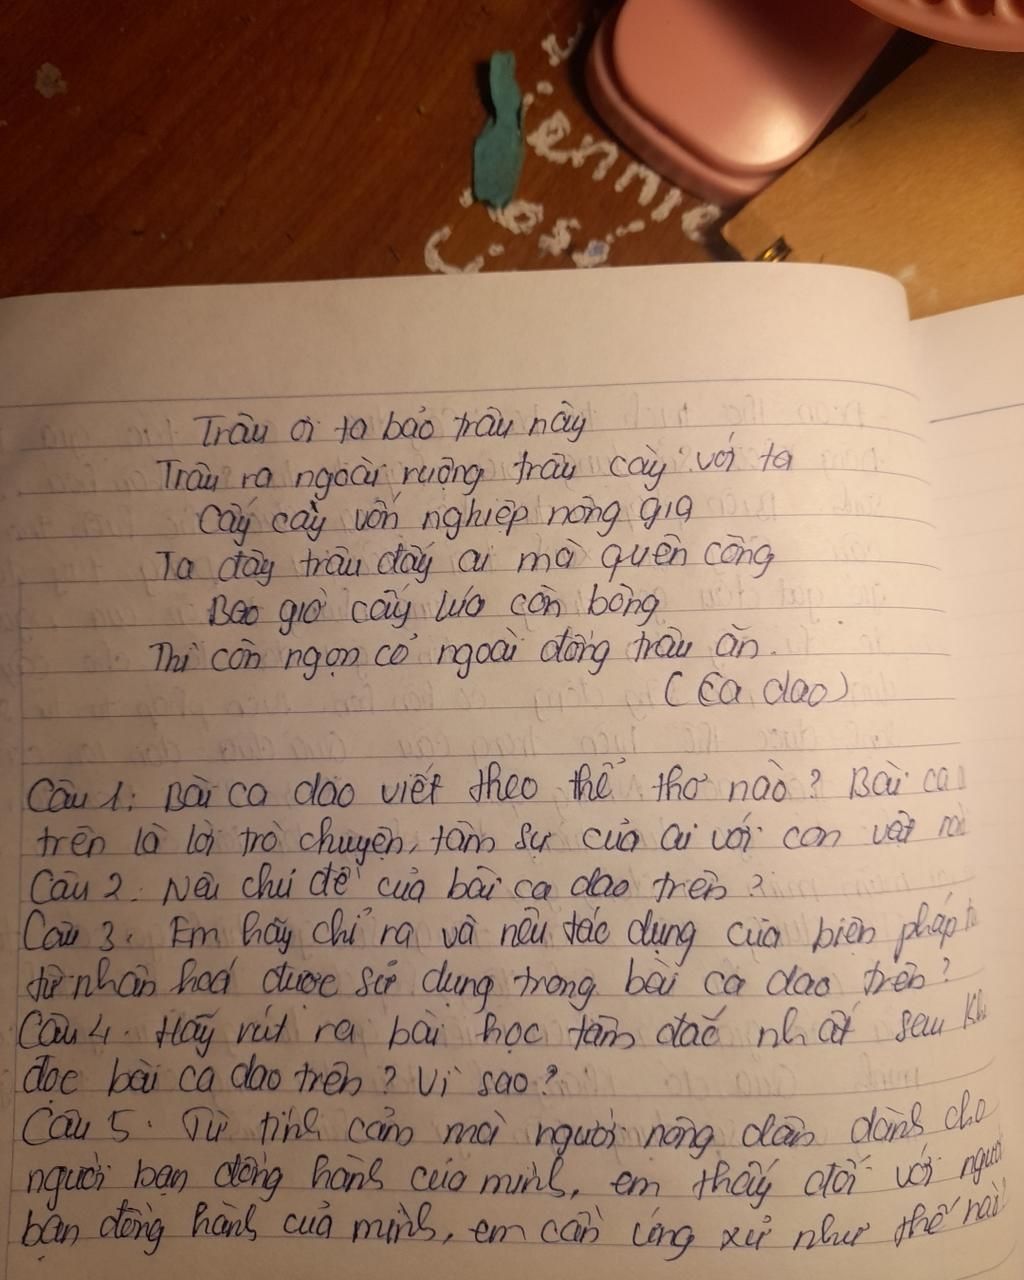 ennie
Trâu ơi ta bảo trâu này
Trâu ra ngoài ruộng trâu cày với ta
Cấy cày vốn nghiệp nông gia
Ta đây trâu đấy ai mà quên công
Bao giờ cây lúa còn bông
Thì còn ngọn cỏ ngoài đồng trâu ăn.
(Ca dao)
Câu 1: Bài ca dao viết theo thể thơ nào? Bài ca
trên là lời trò chuyện, tâm sự của ai với con vật
Câu 2. Nêu chủ đề của bài ca dao trên?
Câu 3. Em hãy chỉ ra và nêu tác dụng của biện pháp tu
từ nhân hoá được sử dụng trong bài ca dao trên?
Câu 4. Hãy rút ra bài học tâm đắc nhất sau khi
đọc bài ca dao trên? Vì sao?
Câu 5. Từ tình cảm mà người nông dân dành cho
người bạn đồng hành của mình, em thấy đối với người
bạn đồng hành của mình, em cần ứng xử như thế nào?